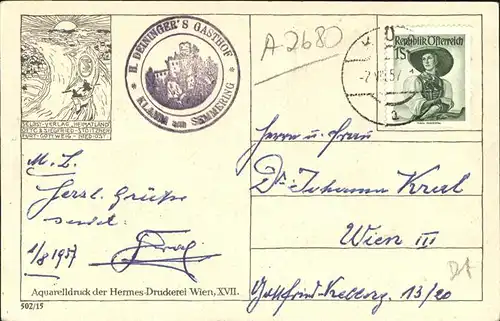 SELBST-VERLAG "HEIMATLAND"
OTTO & SIEGFRIED STOITZNER
FURT-GÖTTWEIG - NIED.ÖST.
H. DEININGER'S GASTHOF
* KLAMM am SEMMERING *
A 2680
Republik Österreich
1S
M. L.
Herzl. Grüße
sendet
1/8 1957
Herrn u. Frau
Dr Johann Kral
Wien III
13/20
Aquarelldruck der Hermes-Druckerei Wien, XVII.
502/15